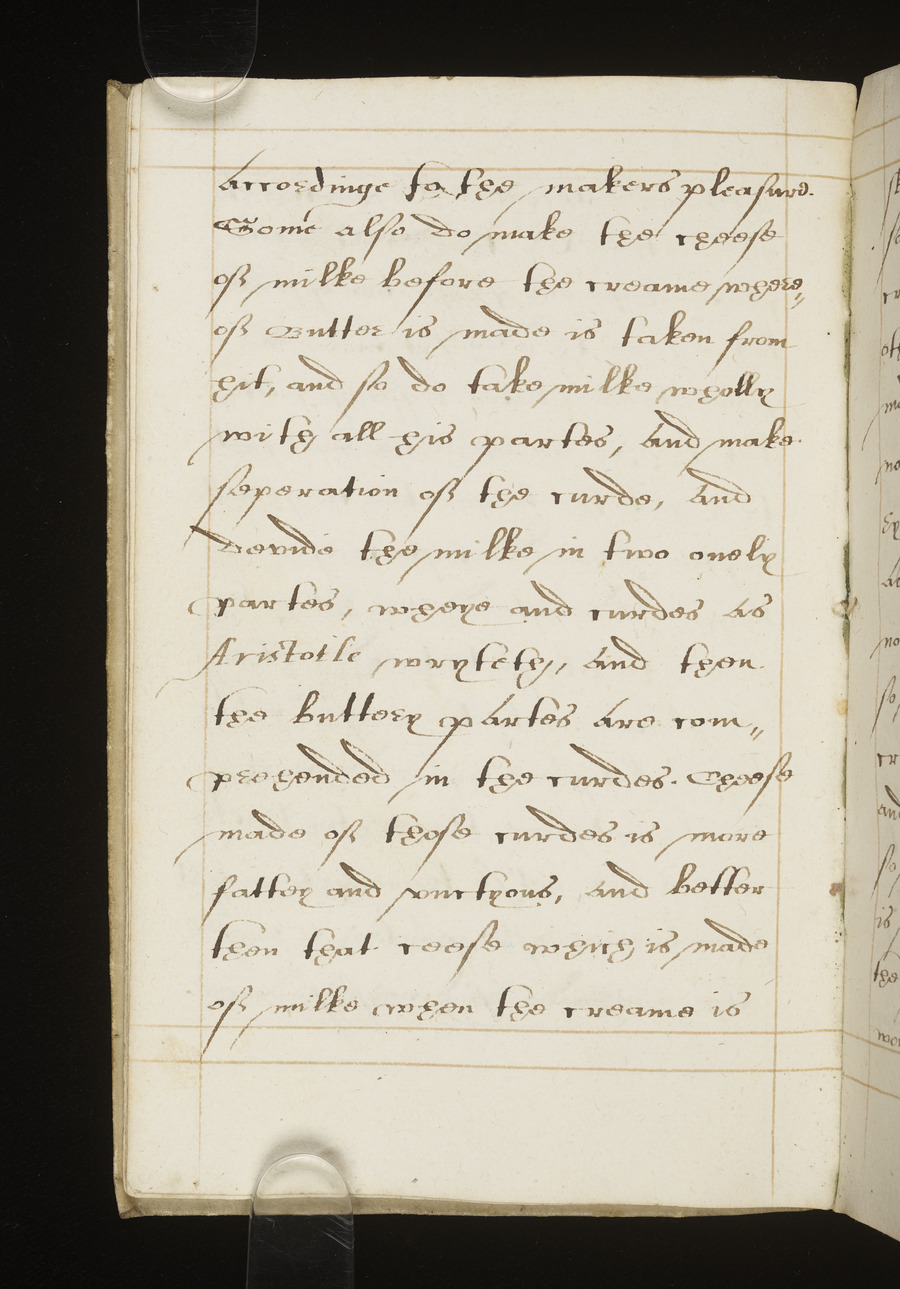 Accordinge to the makers pleasure.
Some also do make the cheese
off milke before the creame where,,
off Butter is made is taken from
hit, and so do take milke wholly
with all his partes, and make
seperation off the curde, and
devide the milke in two onely
partes, wheye and curdes as
Aristotle wryteth, and then
the buttery partes are com,,
prehended in the curdes. Cheese
made off those curdes is more
fattey and vnctyous, and better
then that ceese which is made
off milke when the creame is